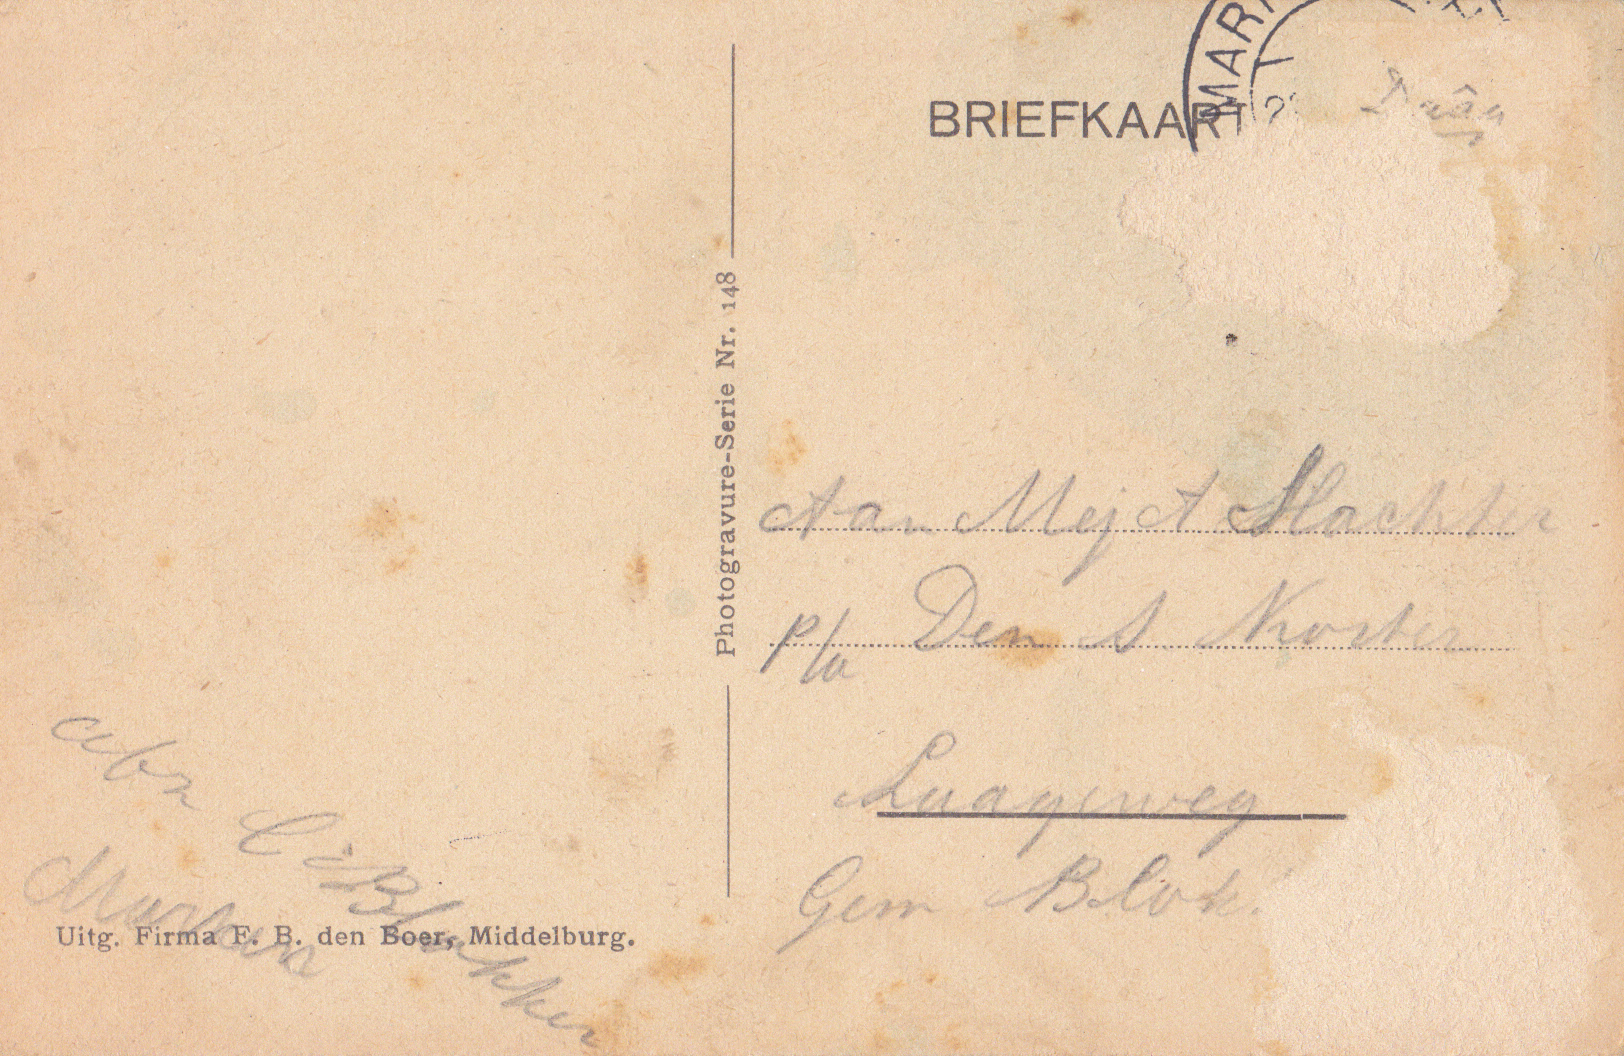 MAR
BRIEFKAART
Photogravure-Serie Nr. 148
Aan Mej A Slachter
p/a Den S. Koster
Laageweg
Gem Blok
abz
C Blakker
Marken
Uitg. Firma F. B. den Boer, Middelburg.